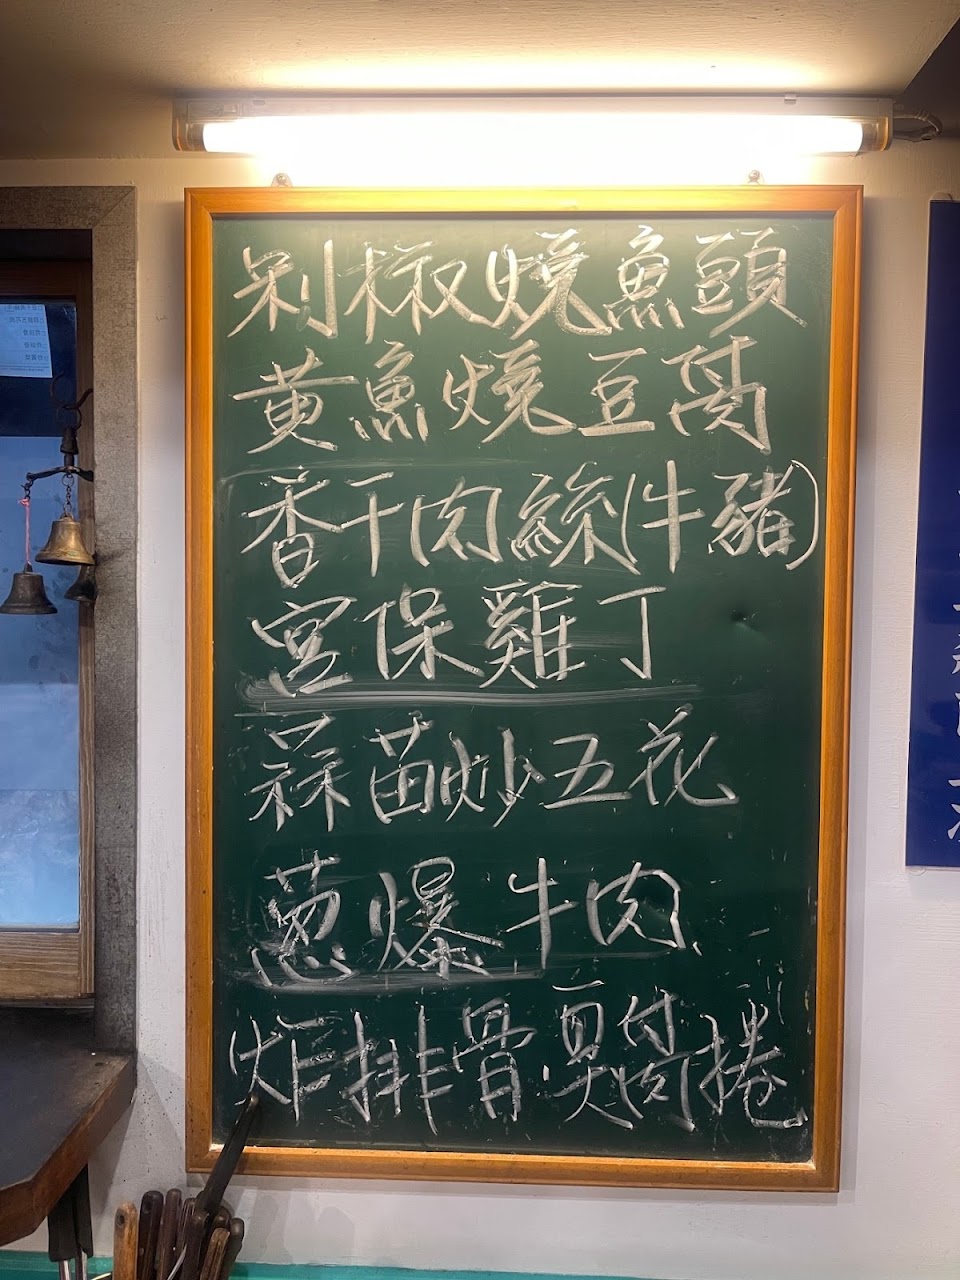 剁椒燒魚頭
黄魚燒豆腐
香干肉絲(牛豬)
宮保雞丁
蒜苗炒五花
蔥爆牛肉
炸排骨·腐捲